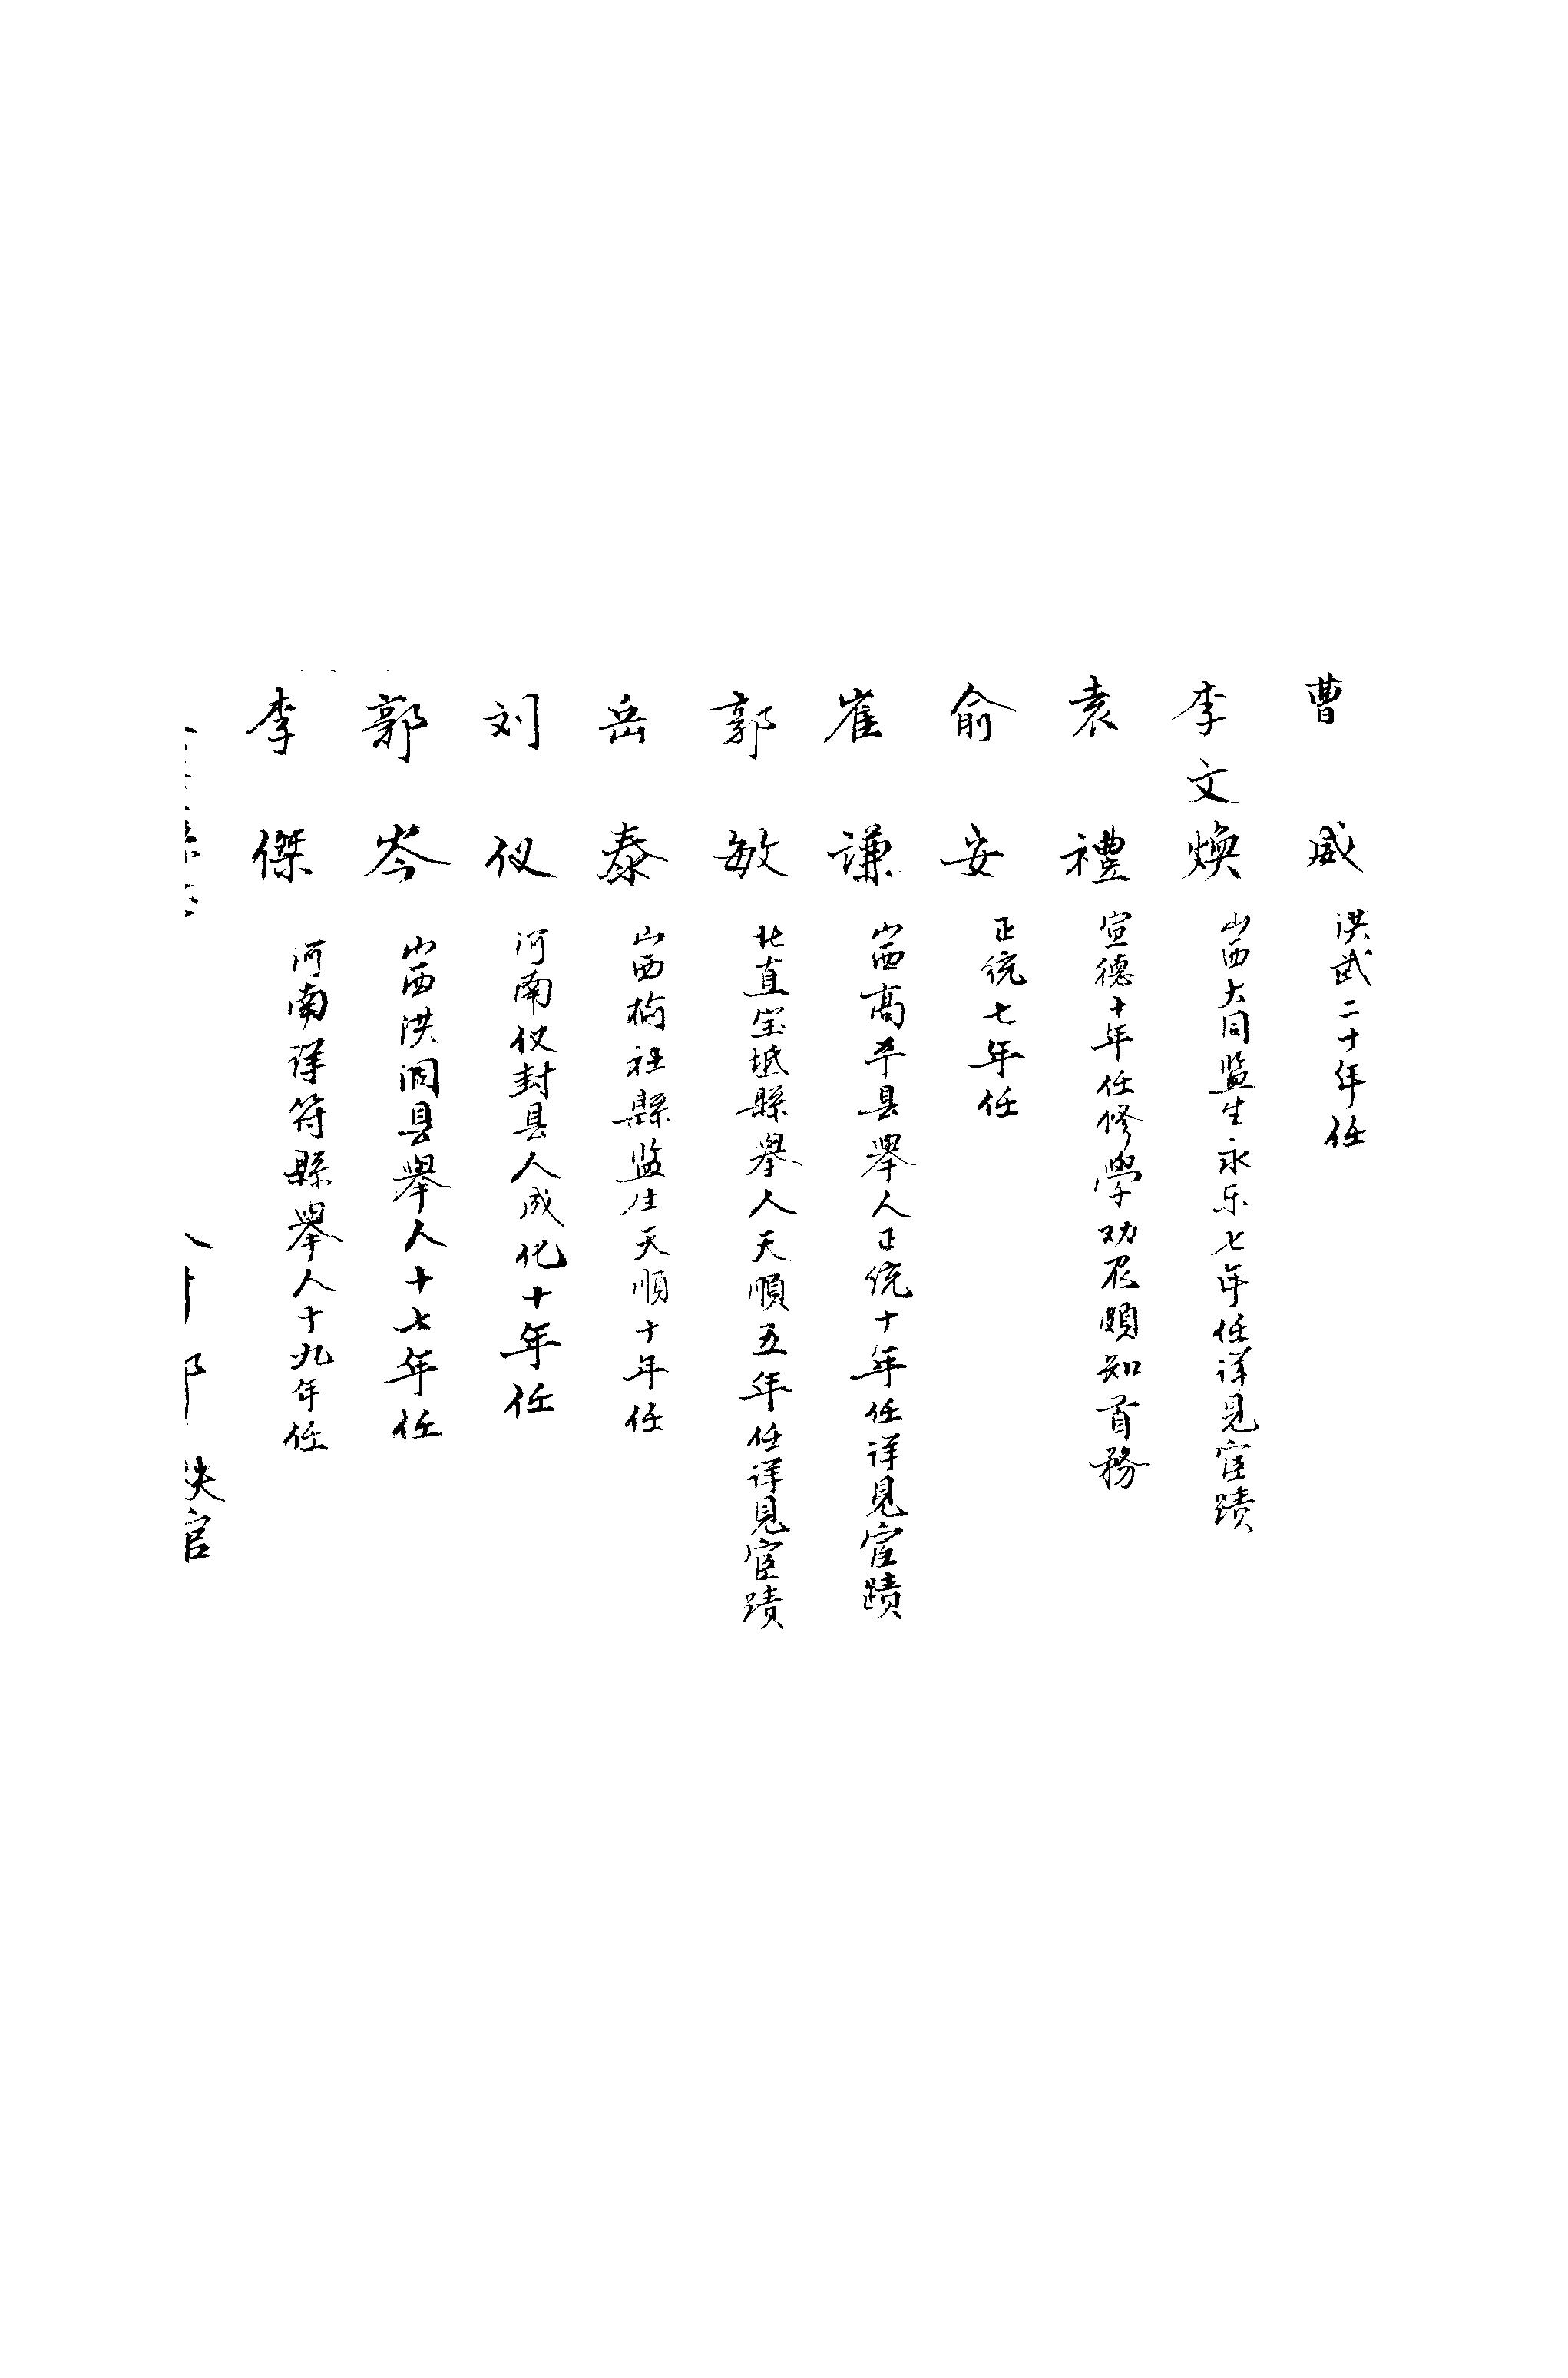 曹威 洪武二十年任
李文焕 山西大同监生永乐七年任详見宦蹟
袁禮 宣德十年任修學劝农頗知首務
俞安 正统七年任
崔谦 山西高平县舉人正统十年任详見宦蹟
郭敏 北直宝坻縣舉人天順五年任详見宦蹟
岳泰 山西榆社縣监生天順十年任
刘仪 河南仪封县人成化十年任
郭岑 山西洪洞县舉人十七年任
李傑 河南详符縣舉人十九年任
官